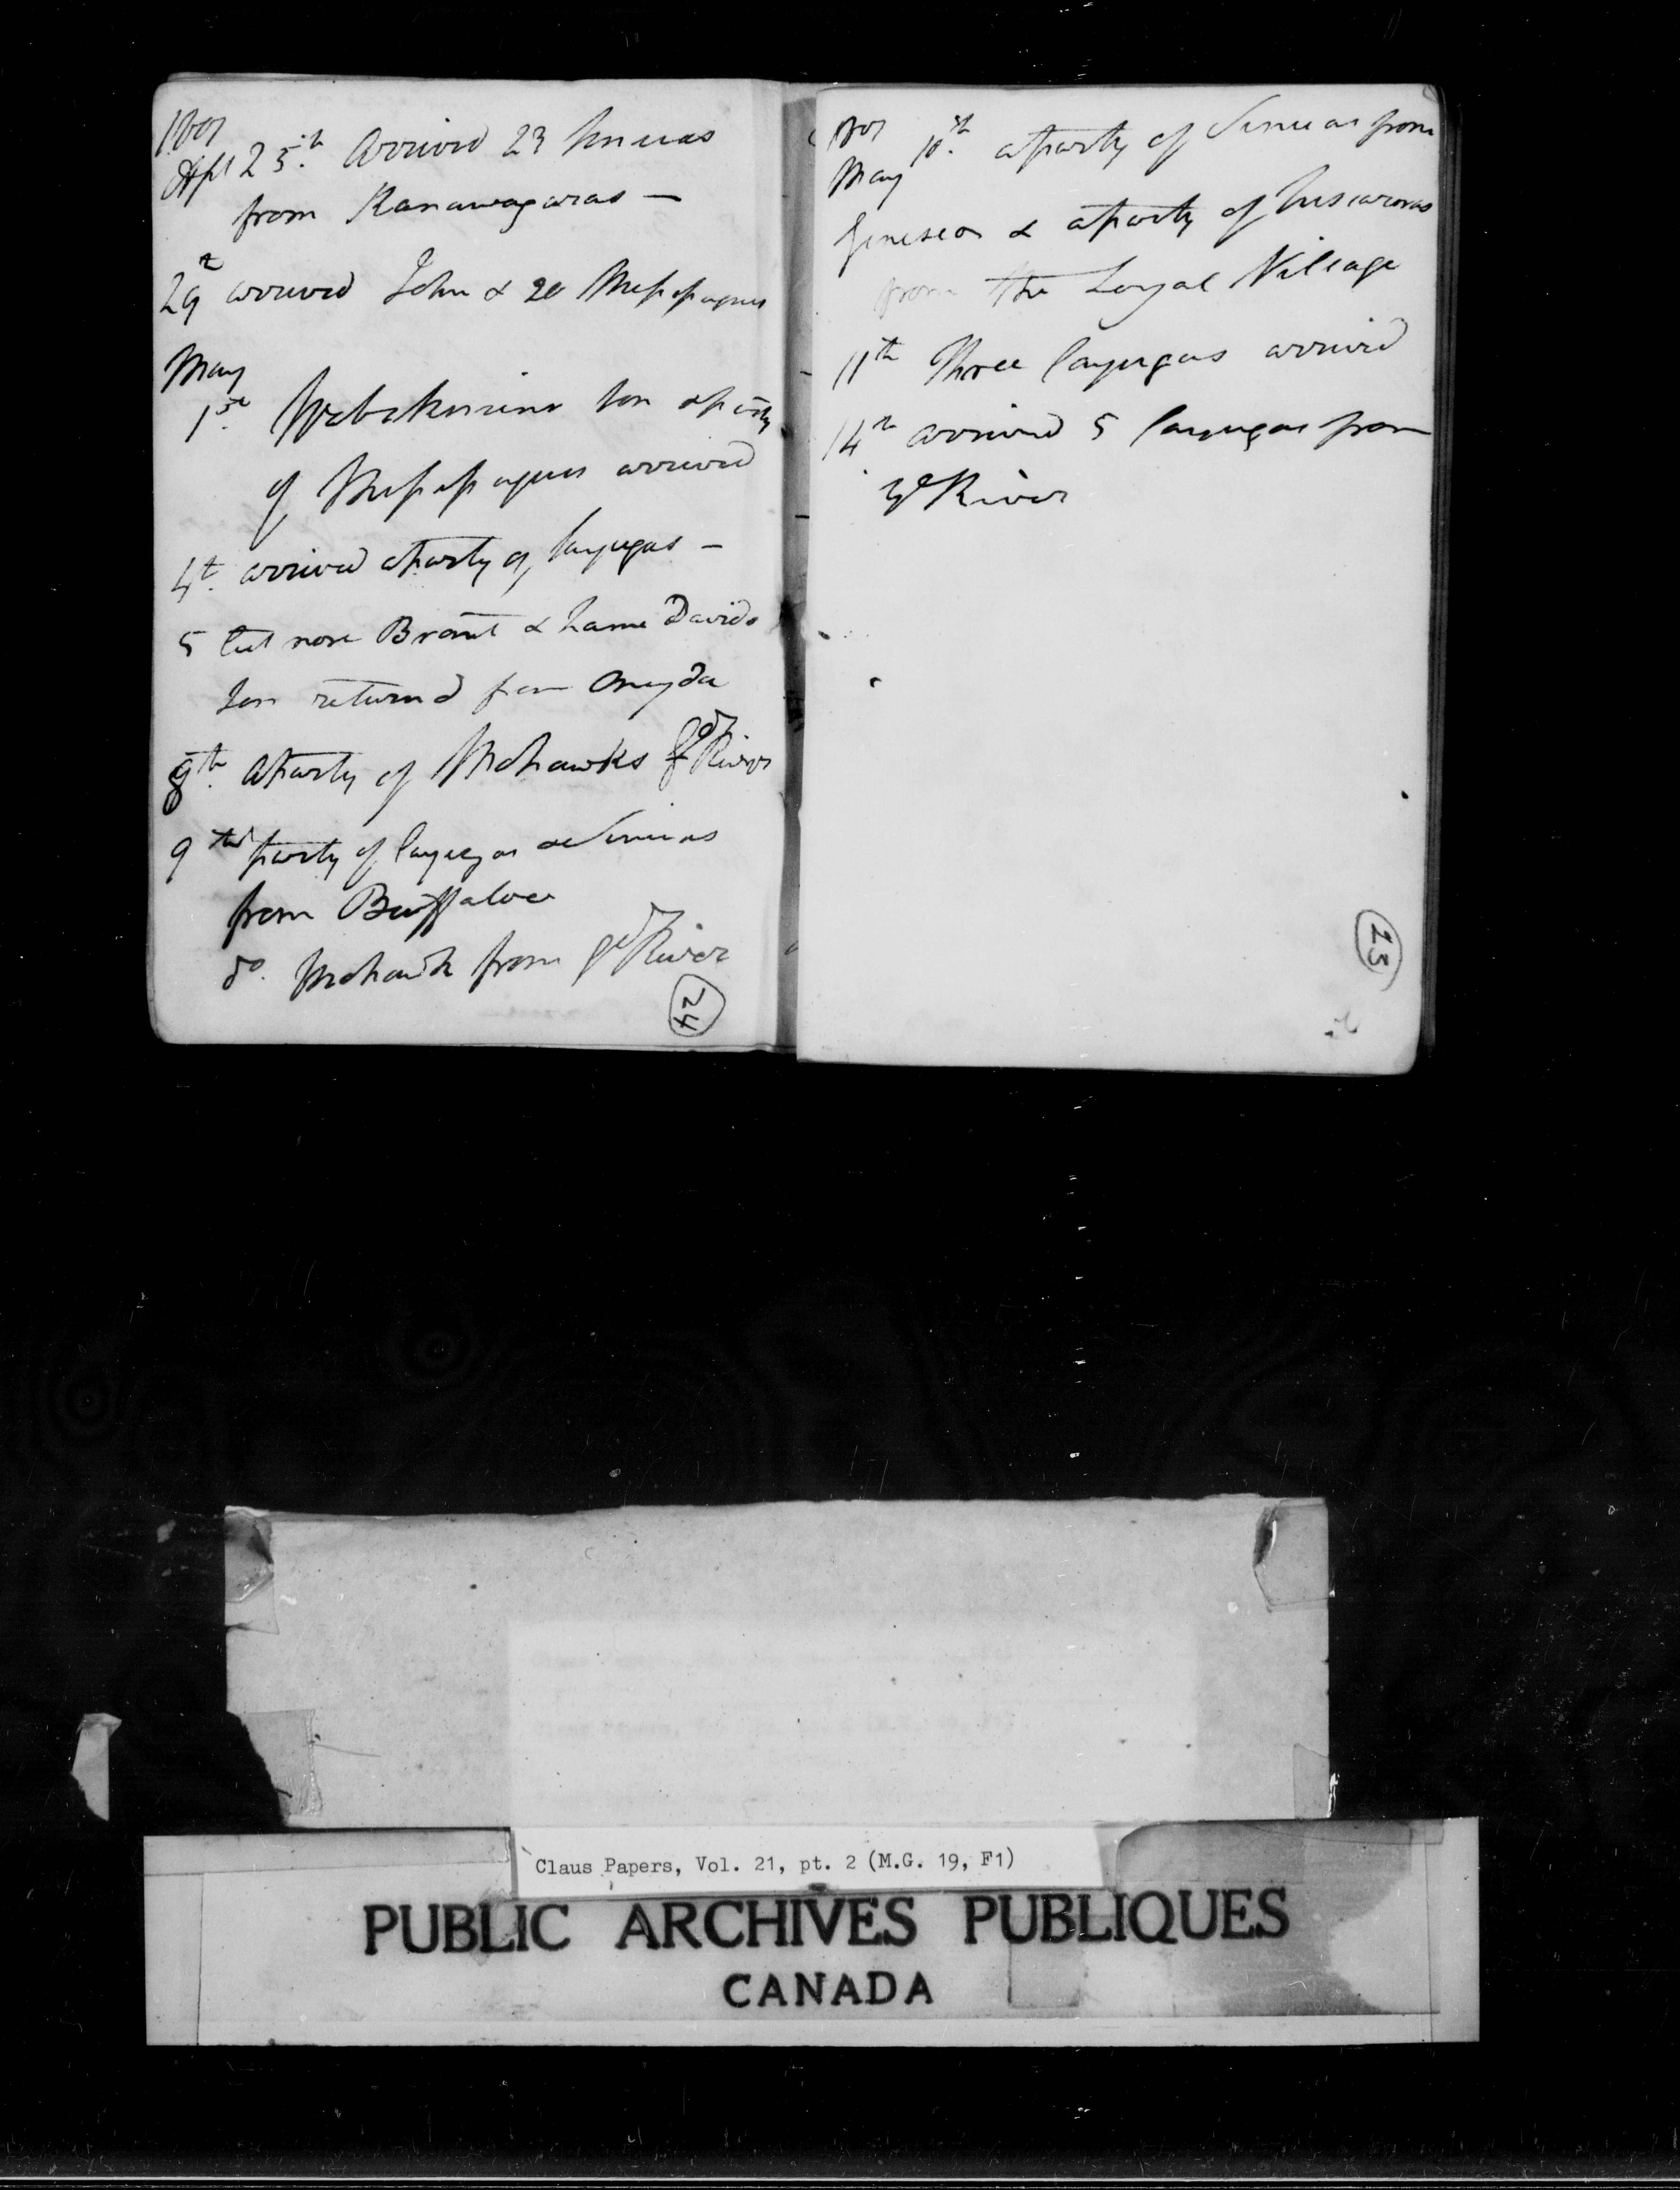 1807
Apl 25th. Arrived 23 Senecas
from Kanawagaras —
29th arrived John & 20 Messesagues
May
1st. son & party
of Messesagues arrived
4t. arrived a party of Cayugas —
5 Cut nose Brant & Lame Davids
Son returnd from Oneyda
8th. a party of Mohawks Gd River
9th party of Cayugas & Senecas
from Buffaloe
do. Mohawk from Gd River
24
1807
May 10th. a party of Senecas from
Geneseo & a party of Tuscaroras
from the Loyal Village
11th Three Cayugas arrived
14th arrived 5 Cayugas from
Gd River
25
Claus Papers, Vol. 21, pt. 2 (M.G. 19, F1)
PUBLIC ARCHIVES PUBLIQUES
CANADA